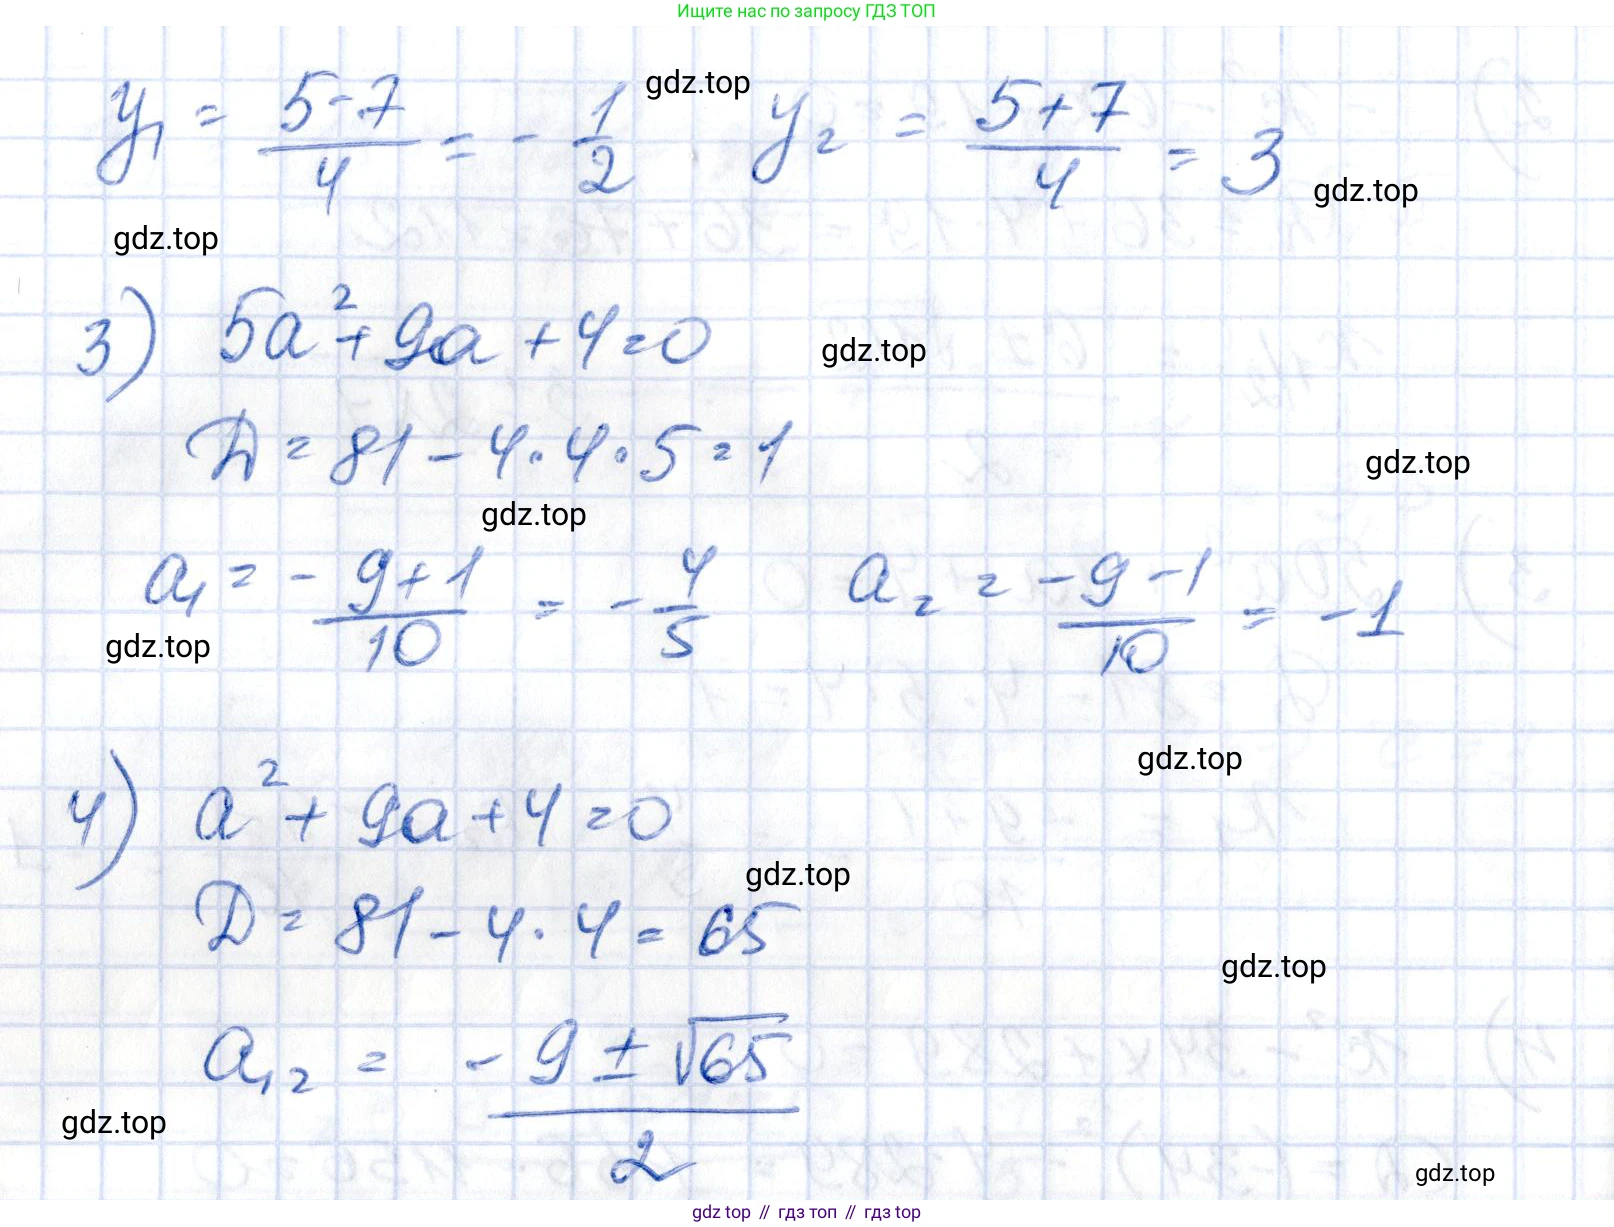 Ищите нас по запросу ГДЗ ТОП
y₁ = (5-7)/4 = -1/2 gdz.top y₂ = (5+7)/4 = 3
gdz.top
gdz.top
3) 5a² + 9a + 4 = 0
gdz.top
D = 81 - 4·4·5 = 1
gdz.top
gdz.top
a₁ = -9+1/10 = -4/5 a₂ = -9-1/10 = -1
gdz.top
gdz.top
4) a² + 9a + 4 = 0
gdz.top
D = 81 - 4·4 = 65
gdz.top
a₁,₂ = -9±√65/2
gdz.top
gdz.top
gdz top // гдз топ // гдз top